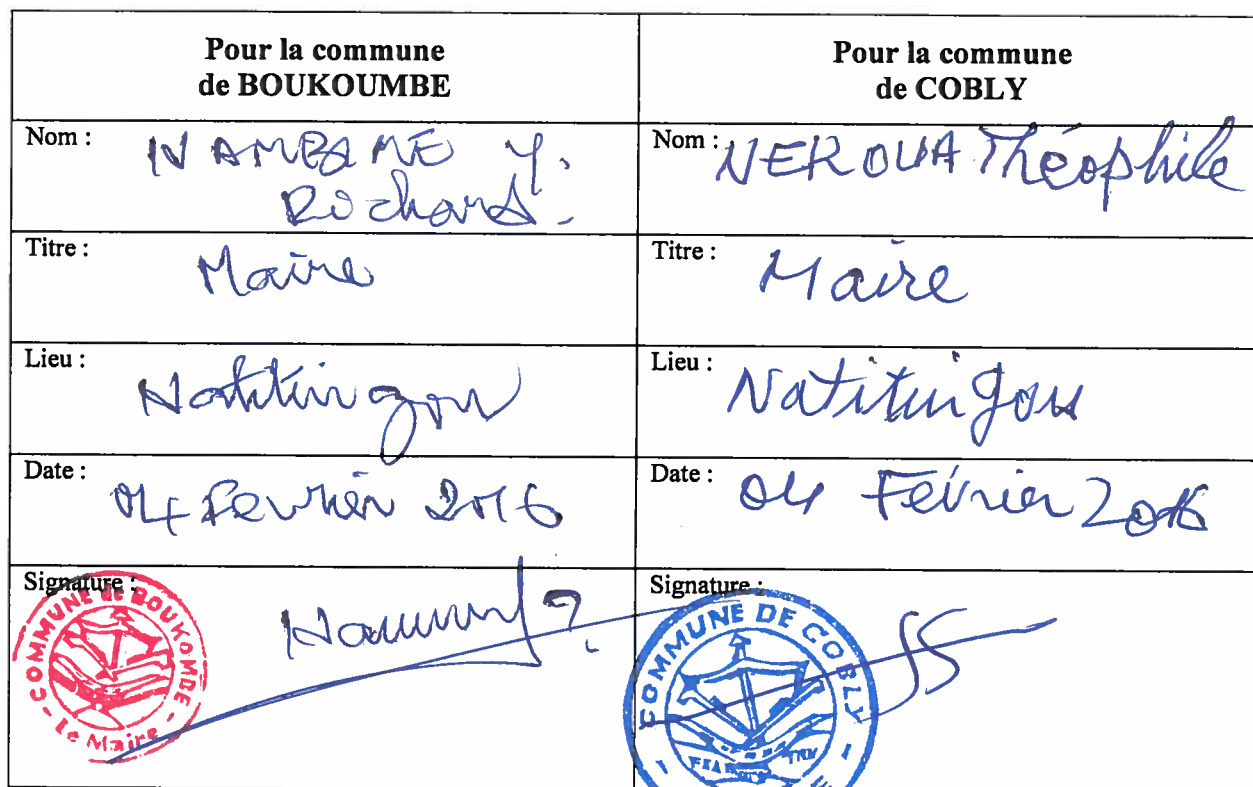 Pour la commune
de BOUKOUMBE
Pour la commune
de COBLY
Nom :
NAMBAME Y.
Rochard.
Nom : NEROUA Théophile
Titre : Maire
Titre : Maire
Lieu : Natitingou
Lieu : Natitingou
Date : 04 Fevrier 2016
Date : 04 Février 2016
Signature :
COMMUNE de BOUKOMBE
Le Maire
Signature :
COMMUNE DE COBLY